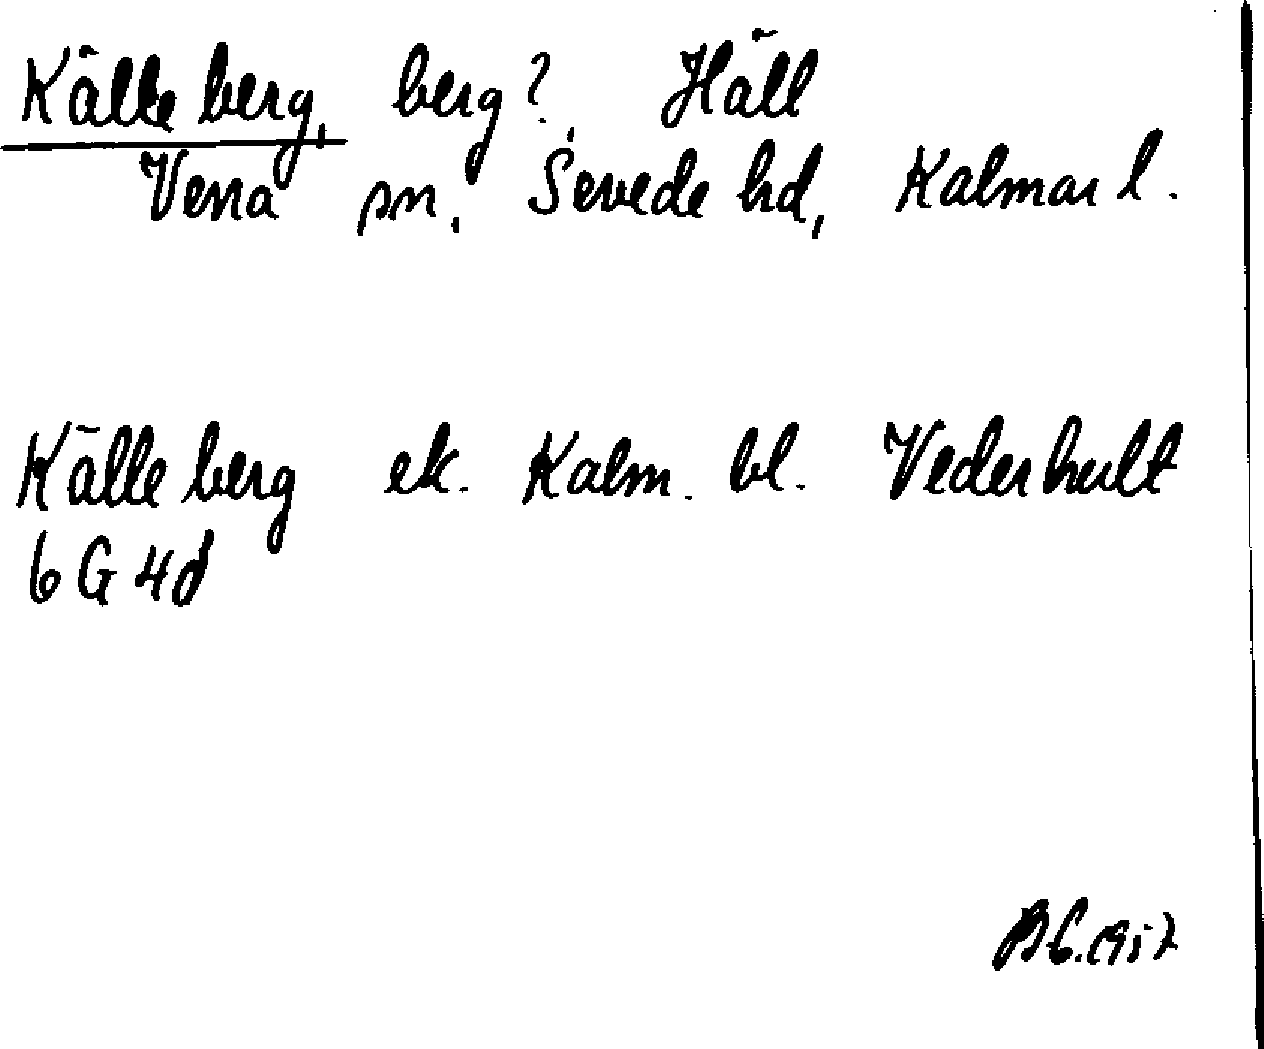 Källeberg, berg? Häll
Vena sn, Sevede hd, Kalmar l.
Källeberg ek. Kalm. bl. Vederhult
6G4d
1957